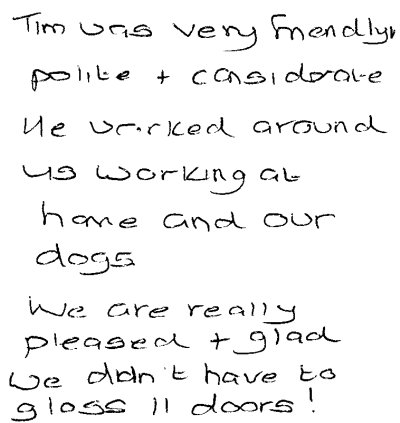 Tim was very friendly
polite + considerate
He worked around
us working at
home and our
dogs
We are really
pleased + glad
we didn't have to
gloss 11 doors!